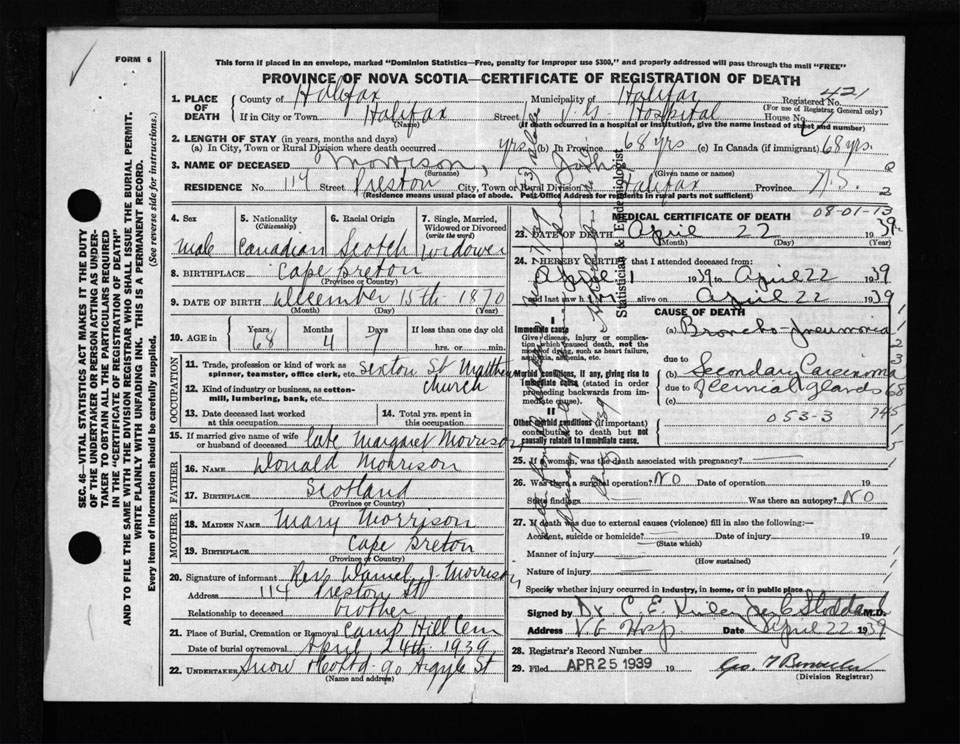 FORM 6
This form if placed in an envelope, marked "Dominion Statistics—Free, penalty for improper use $300," and properly addressed will pass through the mail "FREE"
PROVINCE OF NOVA SCOTIA—CERTIFICATE OF REGISTRATION OF DEATH
421
1. PLACE OF DEATH
County of Halifax Municipality of Halifax Registered No.
(For use of Registrar General only)
If in City or Town Halifax Street V. G. Hospital House No.
(Name) (If death occurred in a hospital or institution, give the name instead of street and number)
2. LENGTH OF STAY (in years, months and days)
(a) In City, Town or Rural Division where death occurred yrs (b) In Province 68 yrs (c) In Canada (if immigrant) 68 yrs.
3. NAME OF DECEASED Morrison, John
(Surname) (Given name or names)
RESIDENCE No. 114 Street Preston City, Town or Rural Division Halifax Province N.S.
(Residence means usual place of abode. Post Office Address for residents in rural parts not sufficient)
SEC. 46—VITAL STATISTICS ACT MAKES IT THE DUTY
OF THE UNDERTAKER OR PERSON ACTING AS UNDER-
TAKER TO OBTAIN ALL THE PARTICULARS REQUIRED
IN THE "CERTIFICATE OF REGISTRATION OF DEATH"
AND TO FILE THE SAME WITH THE DIVISION REGISTRAR WHO SHALL ISSUE THE BURIAL PERMIT.
WRITE PLAINLY WITH UNFADING INK. THIS IS A PERMANENT RECORD.
Every item of information should be carefully supplied. (See reverse side for instructions.)
4. Sex 5. Nationality (Citizenship) 6. Racial Origin 7. Single, Married, Widowed or Divorced (write the word)
Male Canadian Scotch Widower
8. BIRTHPLACE Cape Breton
(Province or Country)
9. DATE OF BIRTH December 15th 1870
(Month) (Day) (Year)
10. AGE in Years 68 Months 4 Days 7 If less than one day old hrs. or min.
OCCUPATION
11. Trade, profession or kind of work as spinner, teamster, office clerk, etc. Sexton St Matthew
12. Kind of industry or business, as cotton-mill, lumbering, bank, etc. Church
13. Date deceased last worked at this occupation
14. Total yrs. spent in this occupation
15. If married give name of wife or husband of deceased late Margaret Morrison
FATHER
16. NAME Donald Morrison
17. BIRTHPLACE Scotland
(Province or Country)
MOTHER
18. MAIDEN NAME Mary Morrison
19. BIRTHPLACE Cape Breton
(Province or Country)
20. Signature of informant Rev. Daniel J. Morrison
Address 114 Preston St
Relationship to deceased brother
21. Place of Burial, Cremation or Removal Camp Hill Cem
Date of burial or removal April 24th 1939
22. UNDERTAKER Snow & Co Ltd 90 Argyle St
(Name and address)
MEDICAL CERTIFICATE OF DEATH
08-01-13
23. DATE OF DEATH April 22 1939
(Month) (Day) (Year)
24. I HEREBY CERTIFY that I attended deceased from:
April 1 1939 to April 22 1939
and last saw him alive on April 22 1939
CAUSE OF DEATH
I
Immediate cause
Give disease, injury or complication which caused death, not the mode of dying, such as heart failure, asphyxia, asthenia, etc.
(a) Broncho-Pneumonia
due to
Morbid conditions, if any, giving rise to immediate cause (stated in order proceeding backwards from immediate cause)
(b) Secondary Carcinoma
due to
(c) Cervical Glands
053-3
II
Other morbid conditions (if important) contributing to death but not causally related to immediate cause.
Statistician & Epidemiologist
25. If a woman, was the death associated with pregnancy?
26. Was there a surgical operation? NO Date of operation 19
State findings Was there an autopsy? NO
27. If death was due to external causes (violence) fill in also the following:—
Accident, suicide or homicide? Date of injury 19
(State which)
Manner of injury
(How sustained)
Nature of injury
Specify whether injury occurred in industry, in home, or in public place.
Signed by Dr. C. E. Stoddard M.D.
Address V. G. Hosp. Date April 22 1939
28. Registrar's Record Number
29. Filed APR 25 1939 19
(Division Registrar)